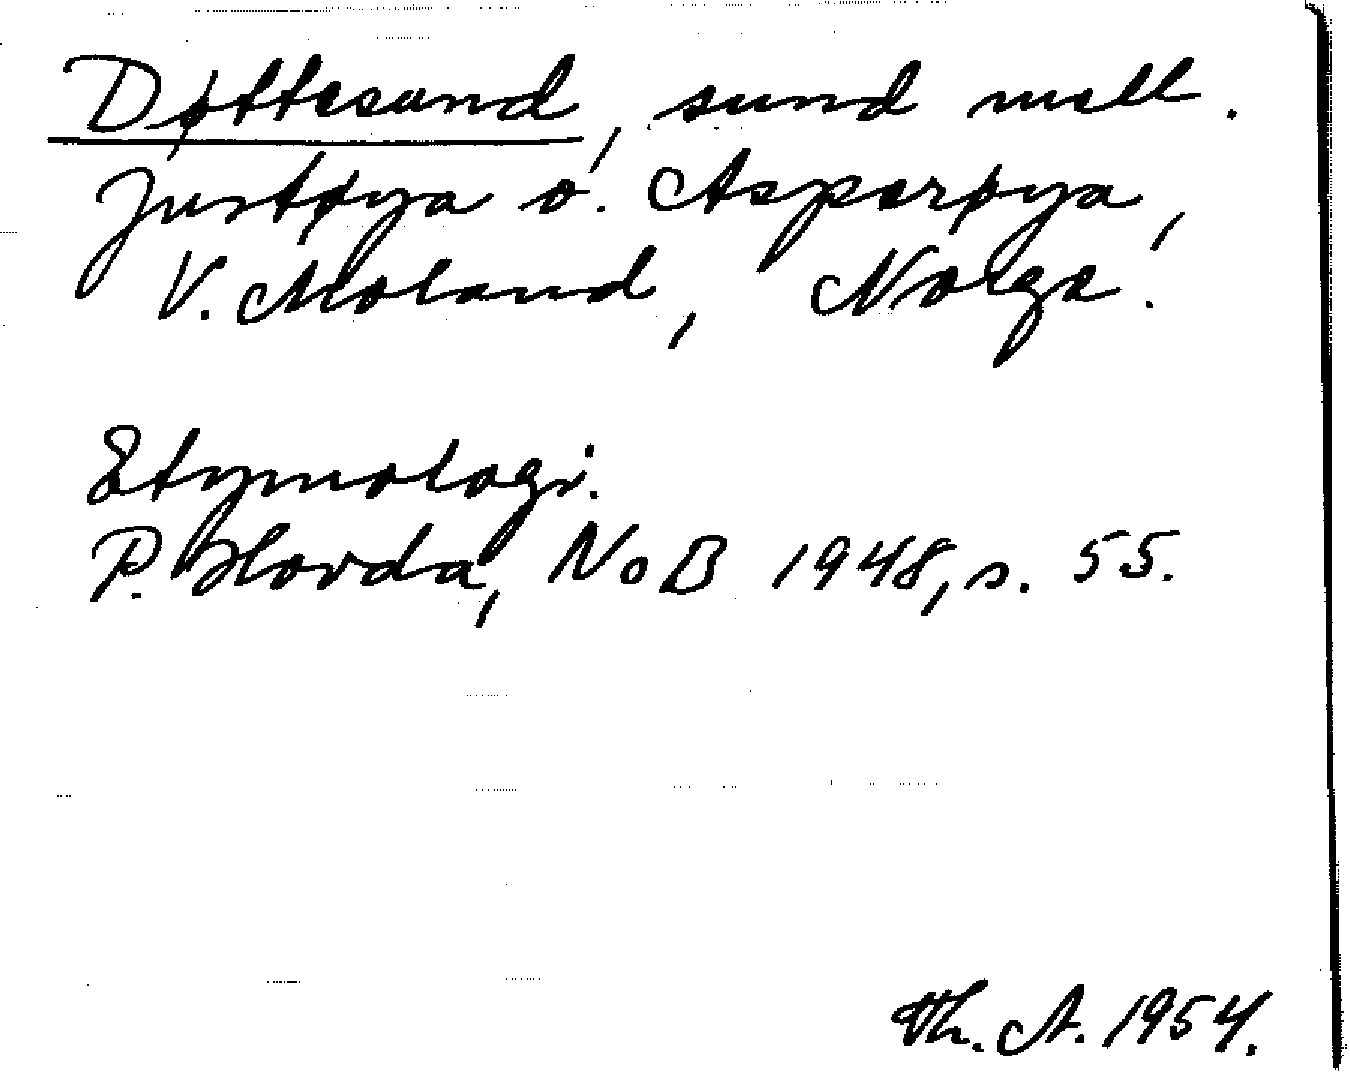 Døttesund, sund mell.
Justøya o. Asperøya,
V. Moland, Norge.
Etymologi.
P. Hovda, NoB 1948, s. 55.
Th. A. 1954.